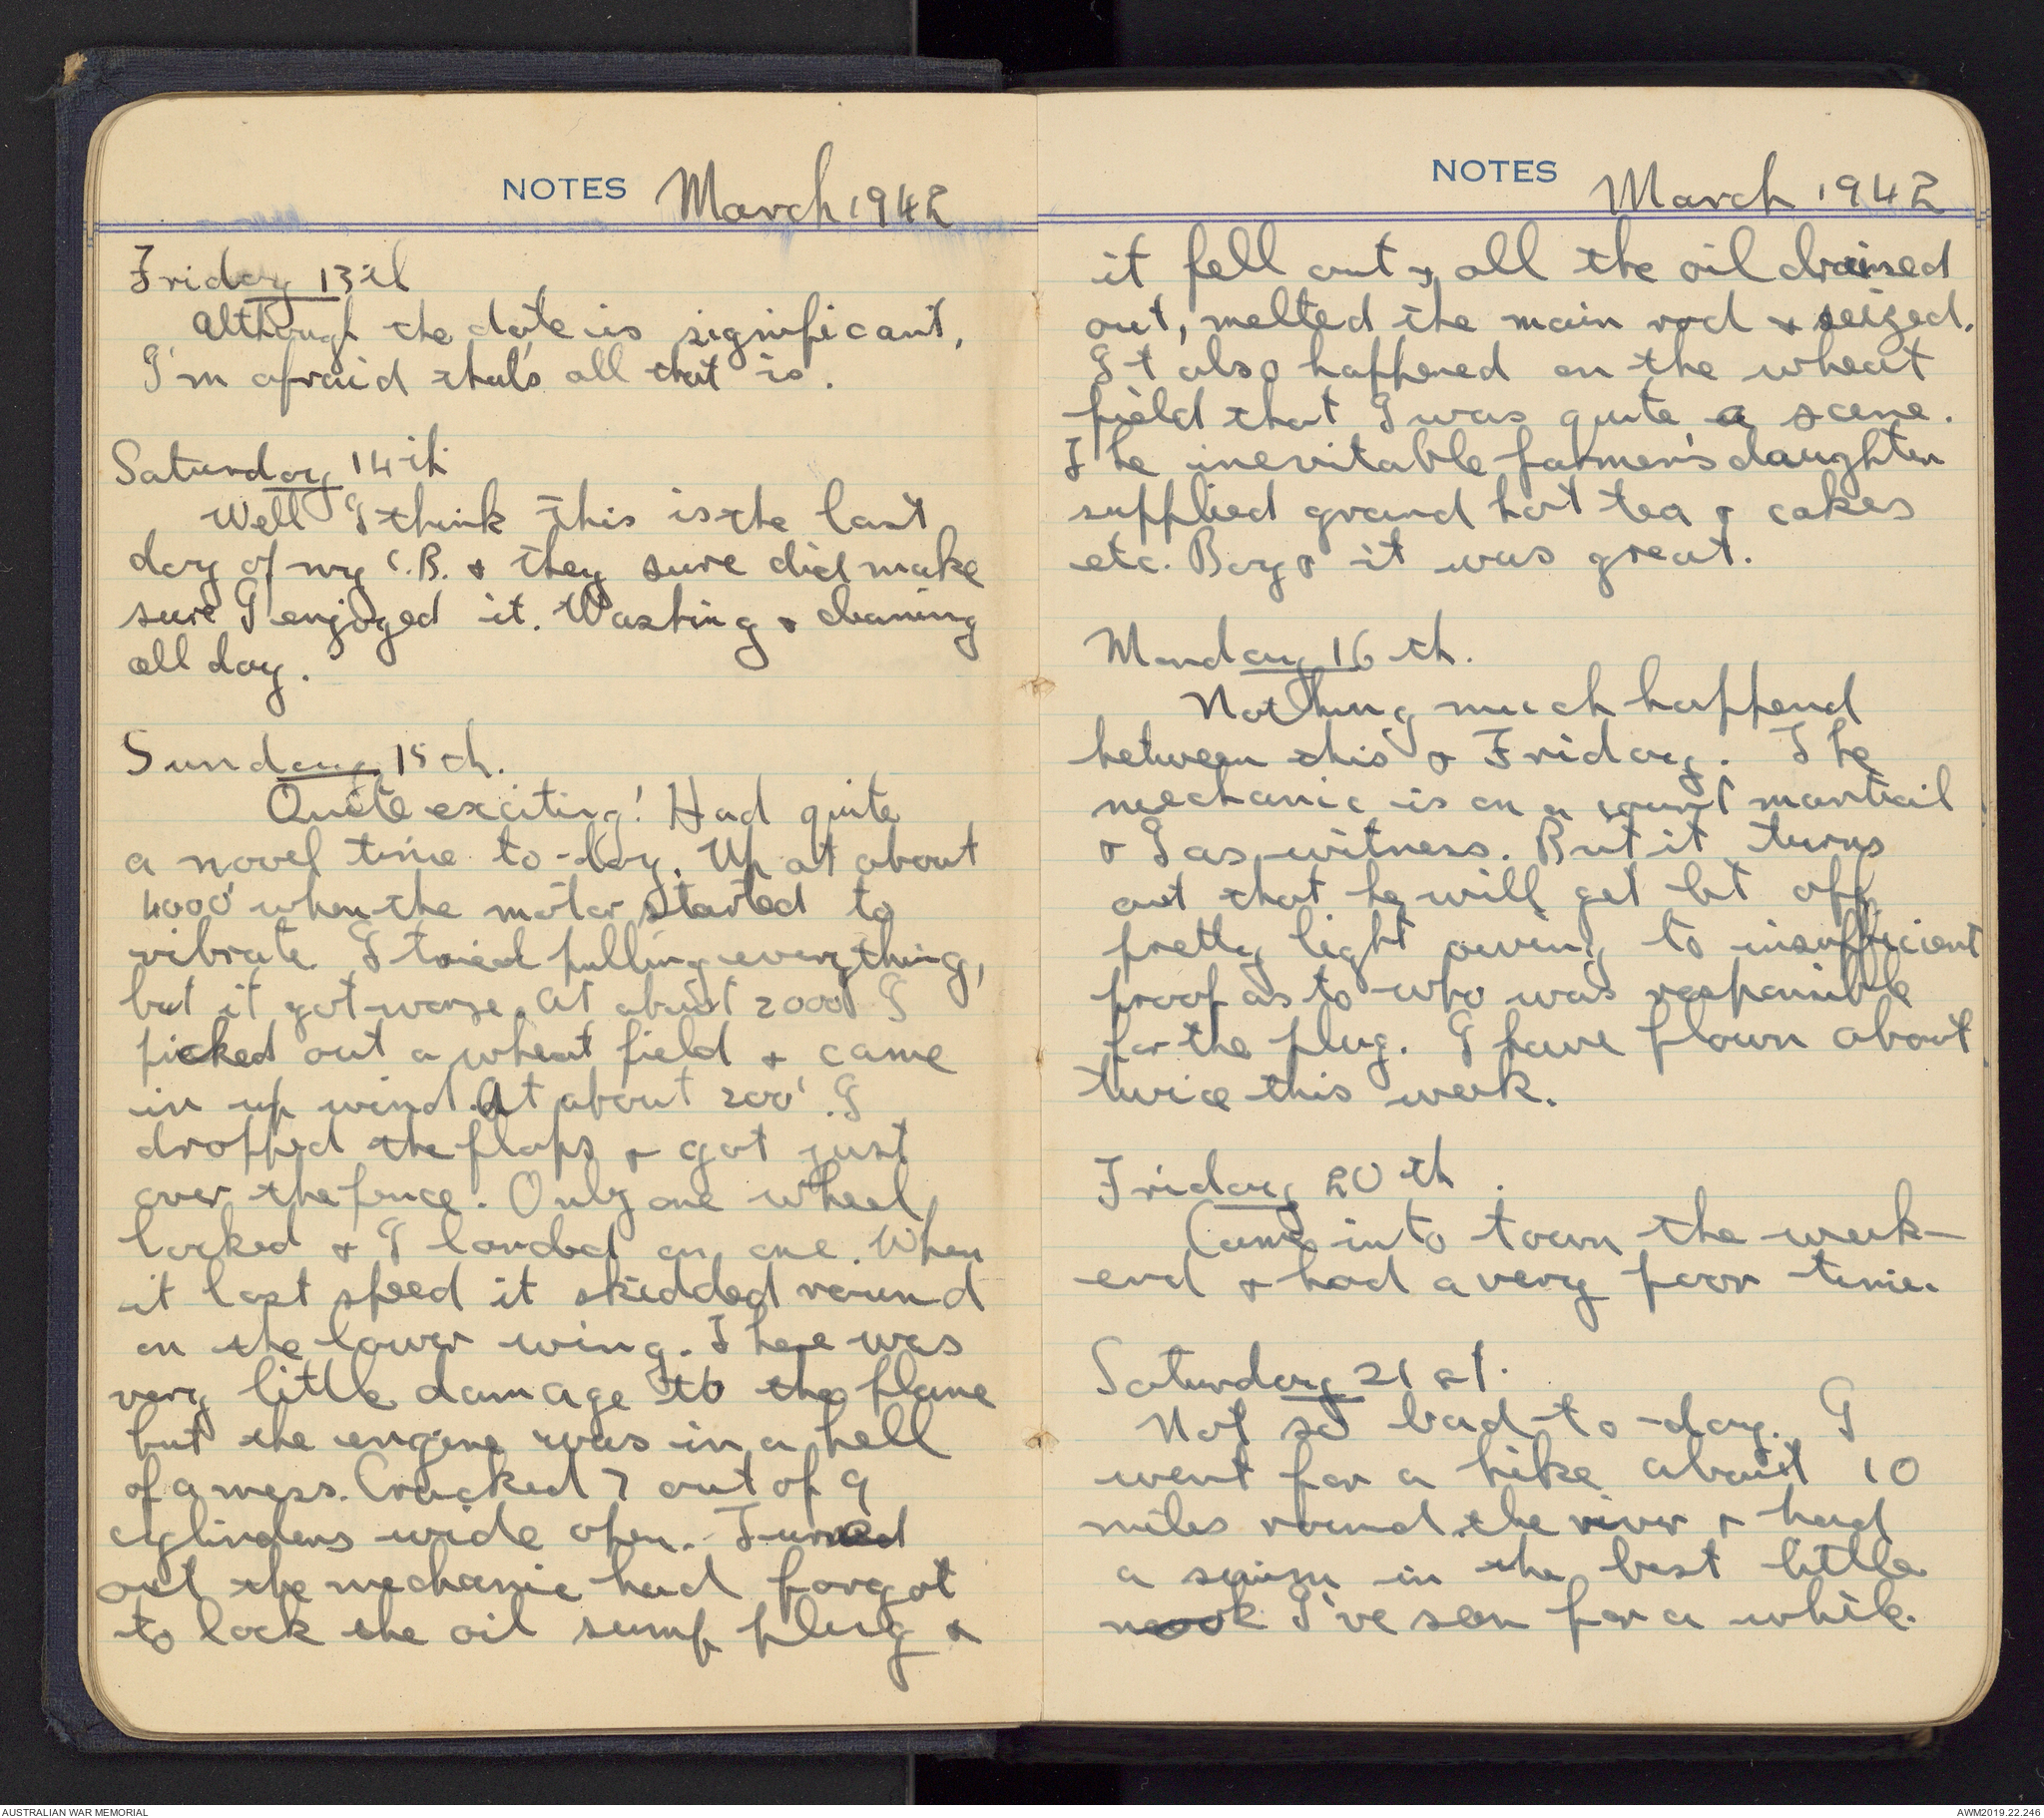 NOTES March 1942
Friday 13th
Although the date is significant,
I'm afraid that's all that is.
Saturday 14th
Well I think this is the last
day of my C.B. & they sure did make
sure I enjoyed it. Washing & cleaning
all day.
Sunday 15th.
Quite exciting! Had quite
a novel time to-day. Up at about
4000' when the motor started to
vibrate. I tried pulling everything,
but it got worse. At about 2000' I
picked out a wheat field & came
in up wind. At about 200'. I
dropped the flaps & got just
over the fence. Only one wheel
locked & I landed on one. When
it lost speed it skidded round
on the lower wing. There was
very little damage to the plane
but the engine was in a hell
of a mess. Cracked 7 out of 9
cylinders wide open. Turned
out the mechanic had forgot
to lock the oil sump plug &
NOTES March 1942
it fell out & all the oil drained
out, melted the main rod & seized.
It also happened on the wheat
field that I was quite a scene.
The inevitable farmer's daughter
supplied grand hot tea & cakes
etc. Boy it was great.
Monday 16th.
Nothing much happend
between this & Friday. The
mechanic is on a court martail
& I as witness. But it turns
out that he will get let off
pretty light owing to insufficient
proof as to who was responsible
for the plug. I have flown about
twice this week.
Friday 20th.
Came into town the week-
end & had a very poor time.
Saturday 21st.
Not so bad to-day. I
went for a hike about 10
miles round the river & had
a swim in the best little
nook I've seen for a while.
AUSTRALIAN WAR MEMORIAL
AWM2019.22.246